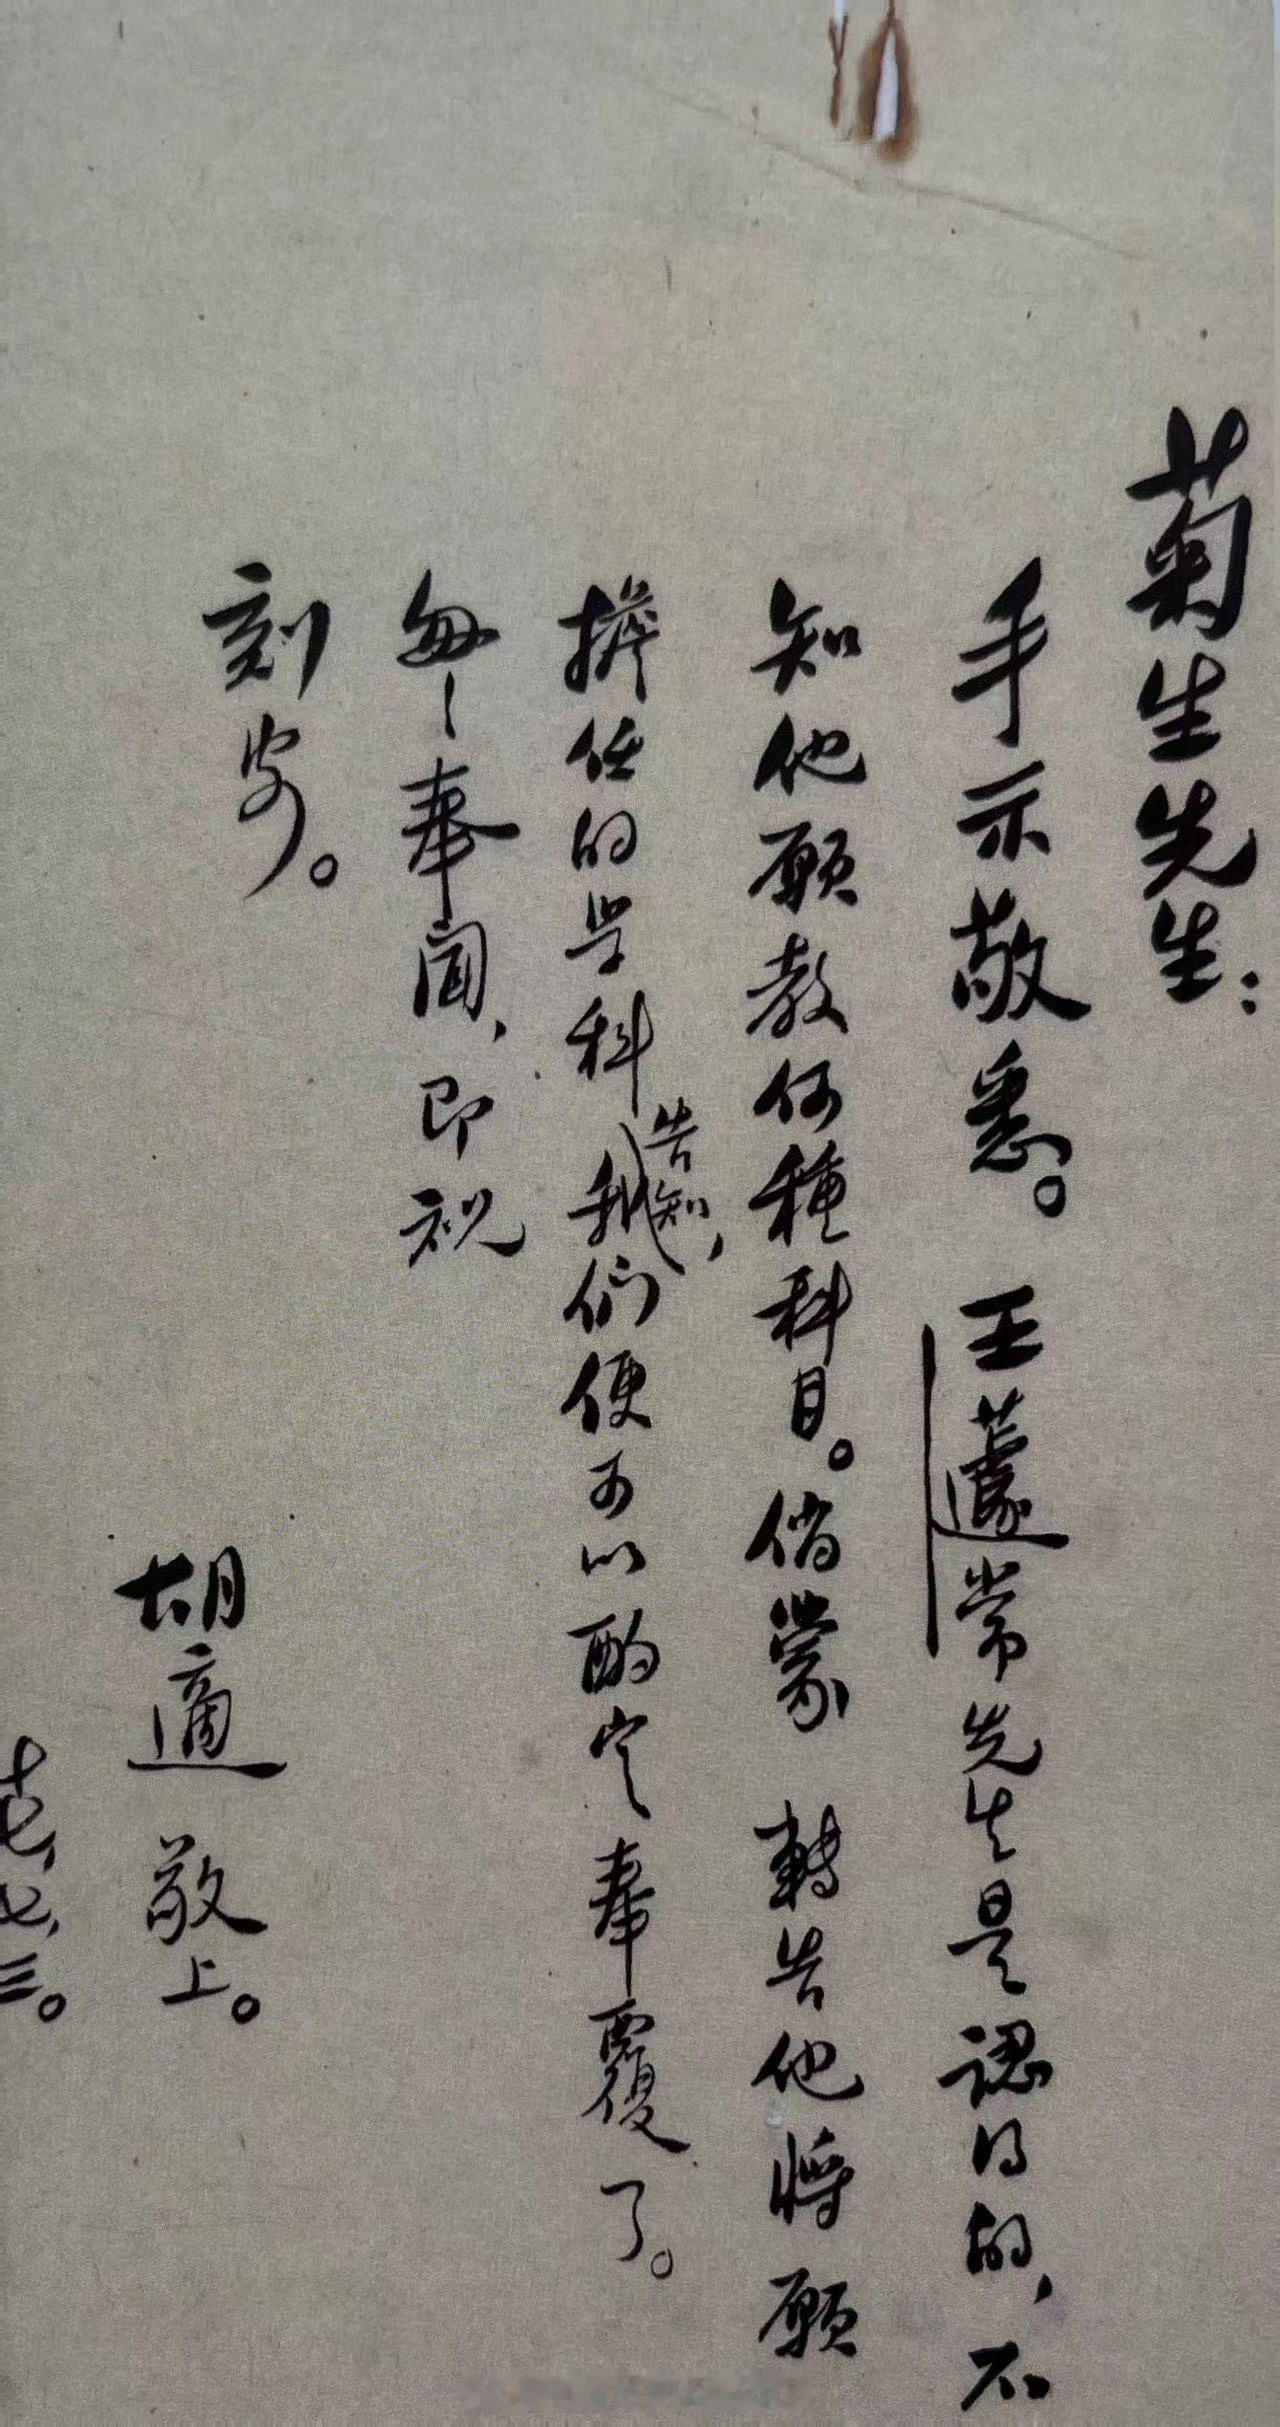 菊生先生：
手示敬悉。王蘧常先生是認得的，不
知他願教何種科目。倘蒙 轉告他將願
擔任的学科告知，我们便可以酌定奉覆了。
匆匆奉聞，即祝
刻安。
胡適敬上。
十七，七，三。